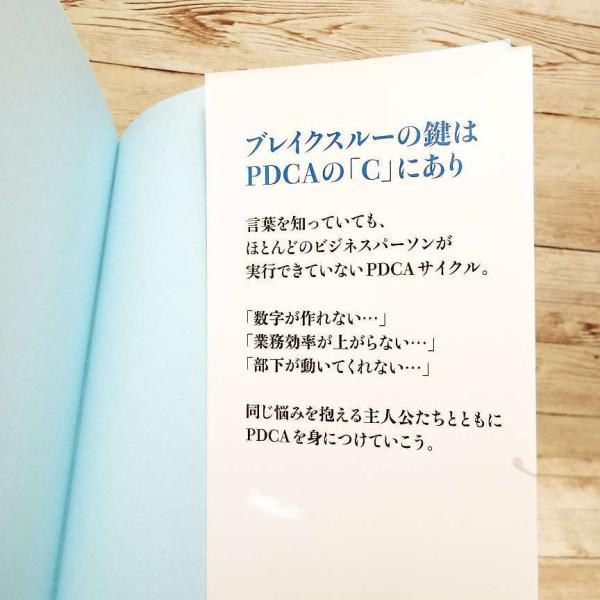 ブレイクスルーの鍵は
PDCAの「C」にあり
言葉を知っていても、
ほとんどのビジネスパーソンが
実行できていないPDCAサイクル。
「数字が作れない…」
「業務効率が上がらない…」
「部下が動いてくれない…」
同じ悩みを抱える主人公たちとともに
PDCAを身につけていこう。